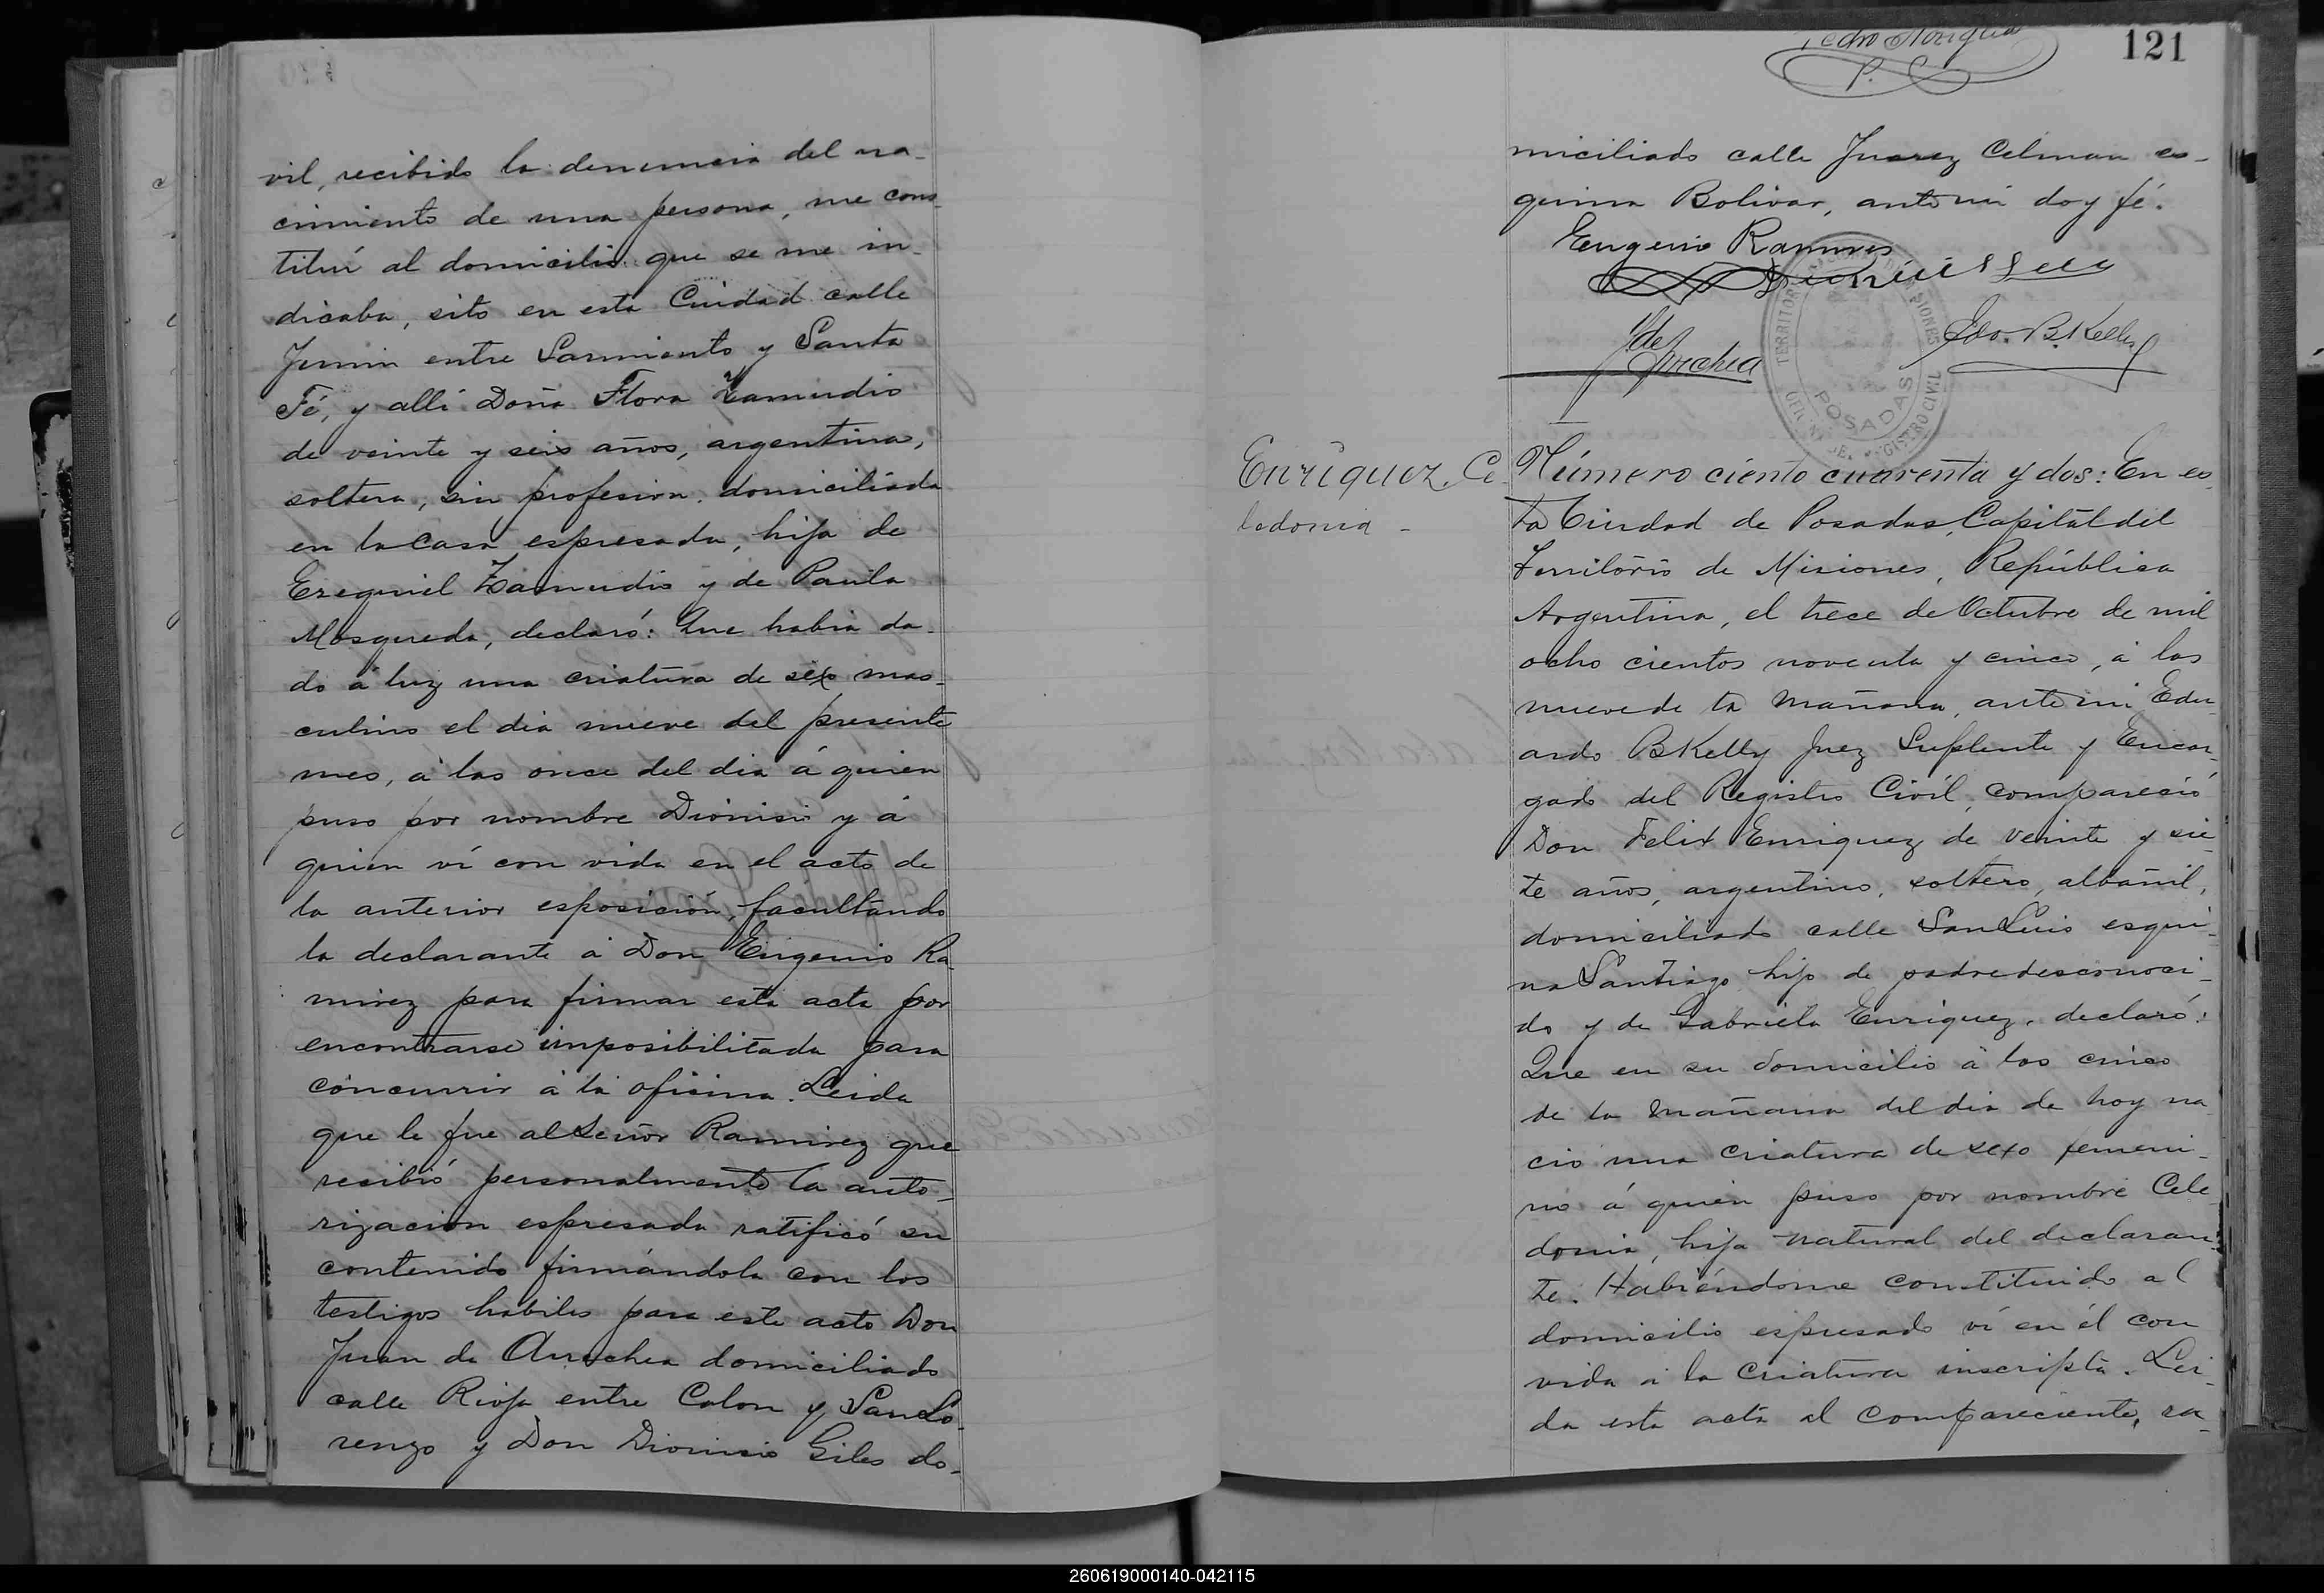 vil, recibido la denuncia del na-
cimiento de una persona, me cons-
tituí al domicilio que se me in-
dicaba, sito en esta Ciudad calle
Junin entre Sarmiento y Santa
Fé, y allí Doña Flora Zamudio
de veinte y seis años, argentina,
soltera, sin profesion, domiciliada
en la casa espresada, hija de
Ezequiel Zamudio y de Paula
Mosqueda, declaró: Que habia da-
do á luz una criatura de sexo mas-
culino el dia nueve del presente
mes, á las once del dia á quien
puso por nombre Dionisio y á
quien ví con vida en el acto de
la anterior esposición, facultando
la declarante á Don Eugenio Ra-
mirez para firmar esta acta por
encontrarse imposibilitada para
concurrir á la oficina. Leida
que le fue al Señor Ramirez que
recibió personalmente la auto-
rizacion espresada ratificó su
contenido firmándola con los
testigos habiles para este acto Don
Juan de Arrechea domiciliado
calle Rioja entre Colon y San Lo-
renzo y Don Dionisio Giles do-
121
Pedro Noziglia
P. C
miciliado calle Juarez Celman es-
quina Bolivar, ante mi doy fé.
Eugenio Ramires
J de Arrechea
Edo. B. Kelly
TERRITORIO DE MISIONES
POSADAS
REGISTRO CIVIL
Enriquez, Ce-
ledonia -
Número ciento cuarenta y dos: En es-
ta Ciudad de Posadas, Capital del
Territorio de Misiones, República
Argentina, el trece de Octubre de mil
ocho cientos noventa y cinco, á las
nueve de la mañana, ante mi Edu-
ardo B Kelly Juez Suplente y Encar-
gado del Registro Civil, compareció
Don Felix Enriquez de veinte y sie-
te años, argentino, soltero, albañil,
domiciliado calle San Luis esqui-
na Santiago hijo de padre desconoci-
do y de Gabriela Enriquez, declaró:
Que en su domicilio á las cinco
de la mañana del dia de hoy na-
ció una criatura de sexo femeni-
no á quien puso por nombre Cele-
donia, hija natural del declaran-
te. Habiéndome constituido al
domicilio espresado ví en él con
vida á la criatura inscripta. Lei-
da esta acta al compareciente, ra-
260619000140-042115